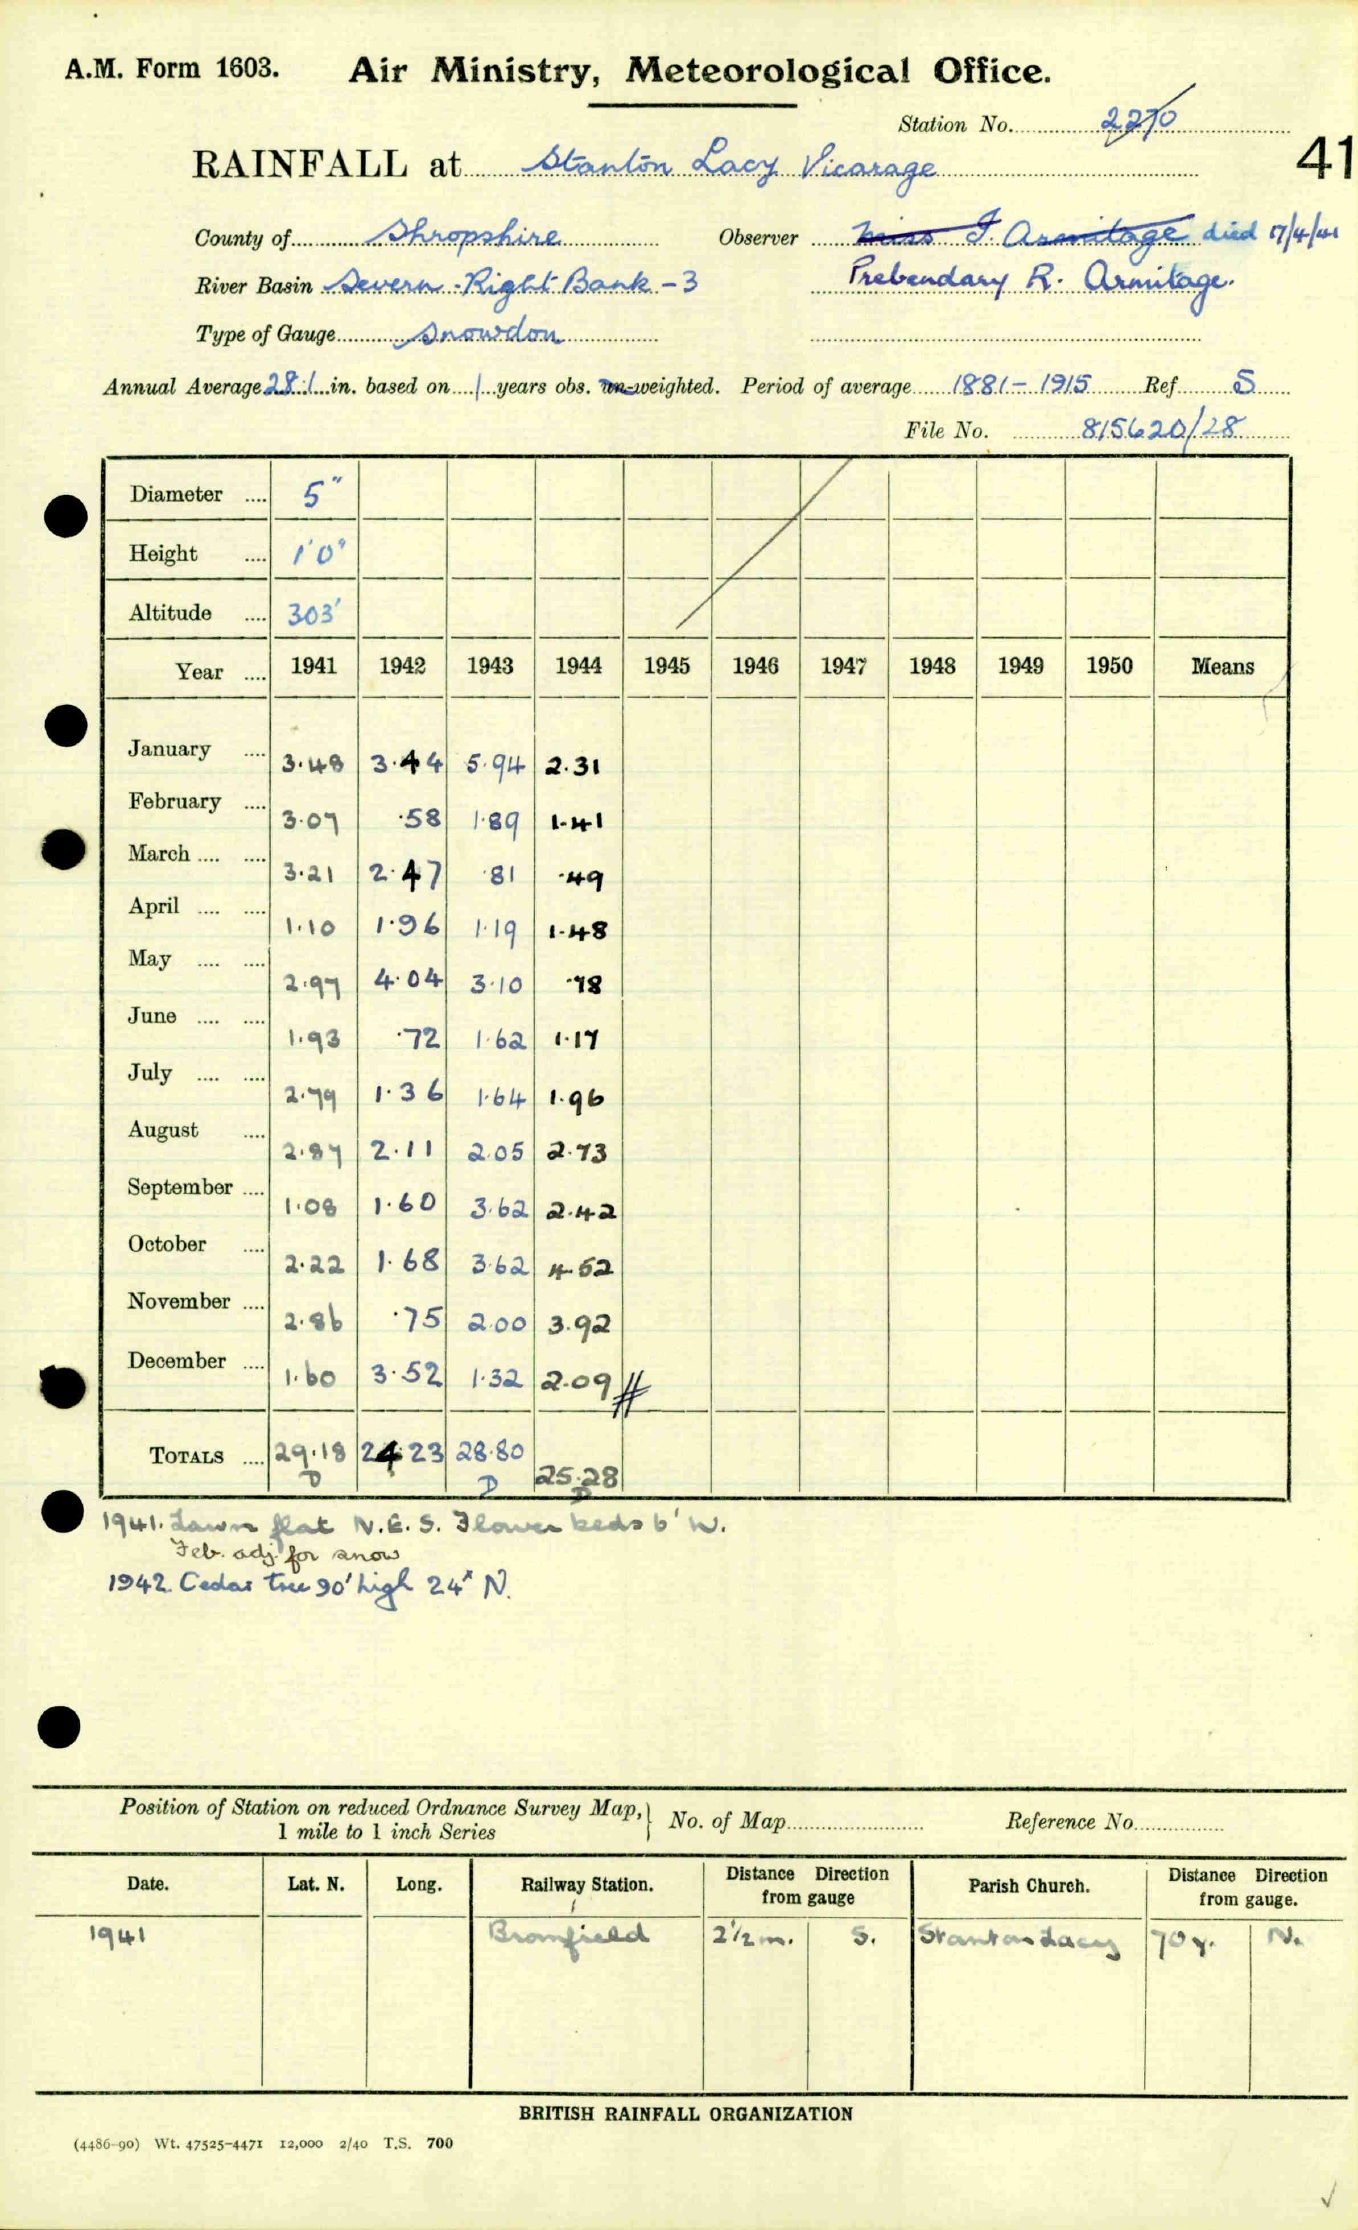 A.M. Form 1603. Air Ministry, Meteorological Office.
Station No. 2270
41
RAINFALL at Stanton Lacy Vicarage
County of Shropshire Observer Miss I. Armitage died 17/4/41
River Basin Severn - Right Bank - 3 Prebendary R. Armitage.
Type of Gauge Snowdon
Annual Average 28.1 in. based on 1 years obs. un-weighted. Period of average 1881 - 1915 Ref S
File No. 815620/28
Diameter .... 5"
Height .... 1'0"
Altitude .... 303'
Year .... 1941 1942 1943 1944 1945 1946 1947 1948 1949 1950 Means
January .... 3.48 3.44 5.94 2.31
February .... 3.07 .58 1.89 1.41
March .... .... 3.21 2.47 .81 .49
April .... .... 1.10 1.96 1.19 1.48
May .... .... 2.97 4.04 3.10 .78
June .... .... 1.93 .72 1.62 1.17
July .... .... 2.79 1.36 1.64 1.96
August .... 2.87 2.11 2.05 2.73
September .... 1.08 1.60 3.62 2.42
October .... 2.22 1.68 3.62 4.52
November .... 2.86 .75 2.00 3.92
December .... 1.60 3.52 1.32 2.09 //
TOTALS .... 29.18 24.23 28.80 25.28
D D D
1941. Lawn flat N.E.S. Flower beds 6' W.
Feb. adj. for snow
1942. Cedar tree 90' high 24x N.
Position of Station on reduced Ordnance Survey Map, } No. of Map Reference No.
1 mile to 1 inch Series
Date. Lat. N. Long. Railway Station. Distance Direction from gauge Parish Church. Distance Direction from gauge.
1941 Bromfield 2½ m. S. Stanton Lacy 70 y. N.
BRITISH RAINFALL ORGANIZATION
(4486-90) Wt. 47525-4471 12,000 2/40 T.S. 700